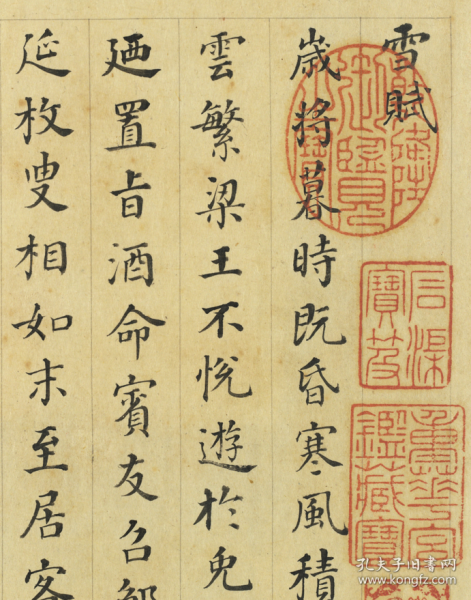 雪賦
歲將暮時既昏寒風積
雲繁梁王不悅遊於兔
廼置旨酒命賓友召鄒
延枚叟相如末至居客
石渠寶笈
重華宮鑑藏寶
孔夫子旧书网
www.kongfz.com